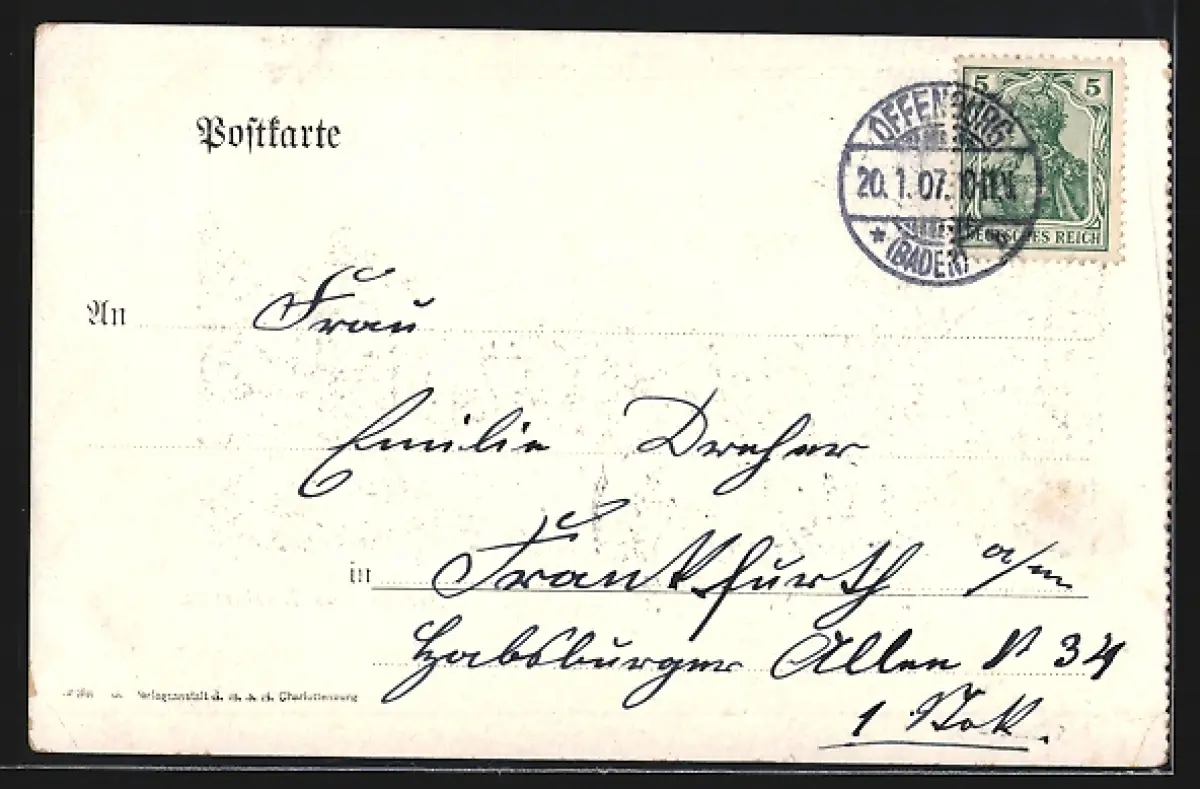 5 5
DEUTSCHES REICH
OFFENBURG
20. 1. 07. 10-11 V.
* (BADEN)
Postkarte
An Frau
Emilie Dreher
in Frankfurth a/m
Habsburger Allee № 34
1 Stok.
Verlagsanstalt Charlottenburg